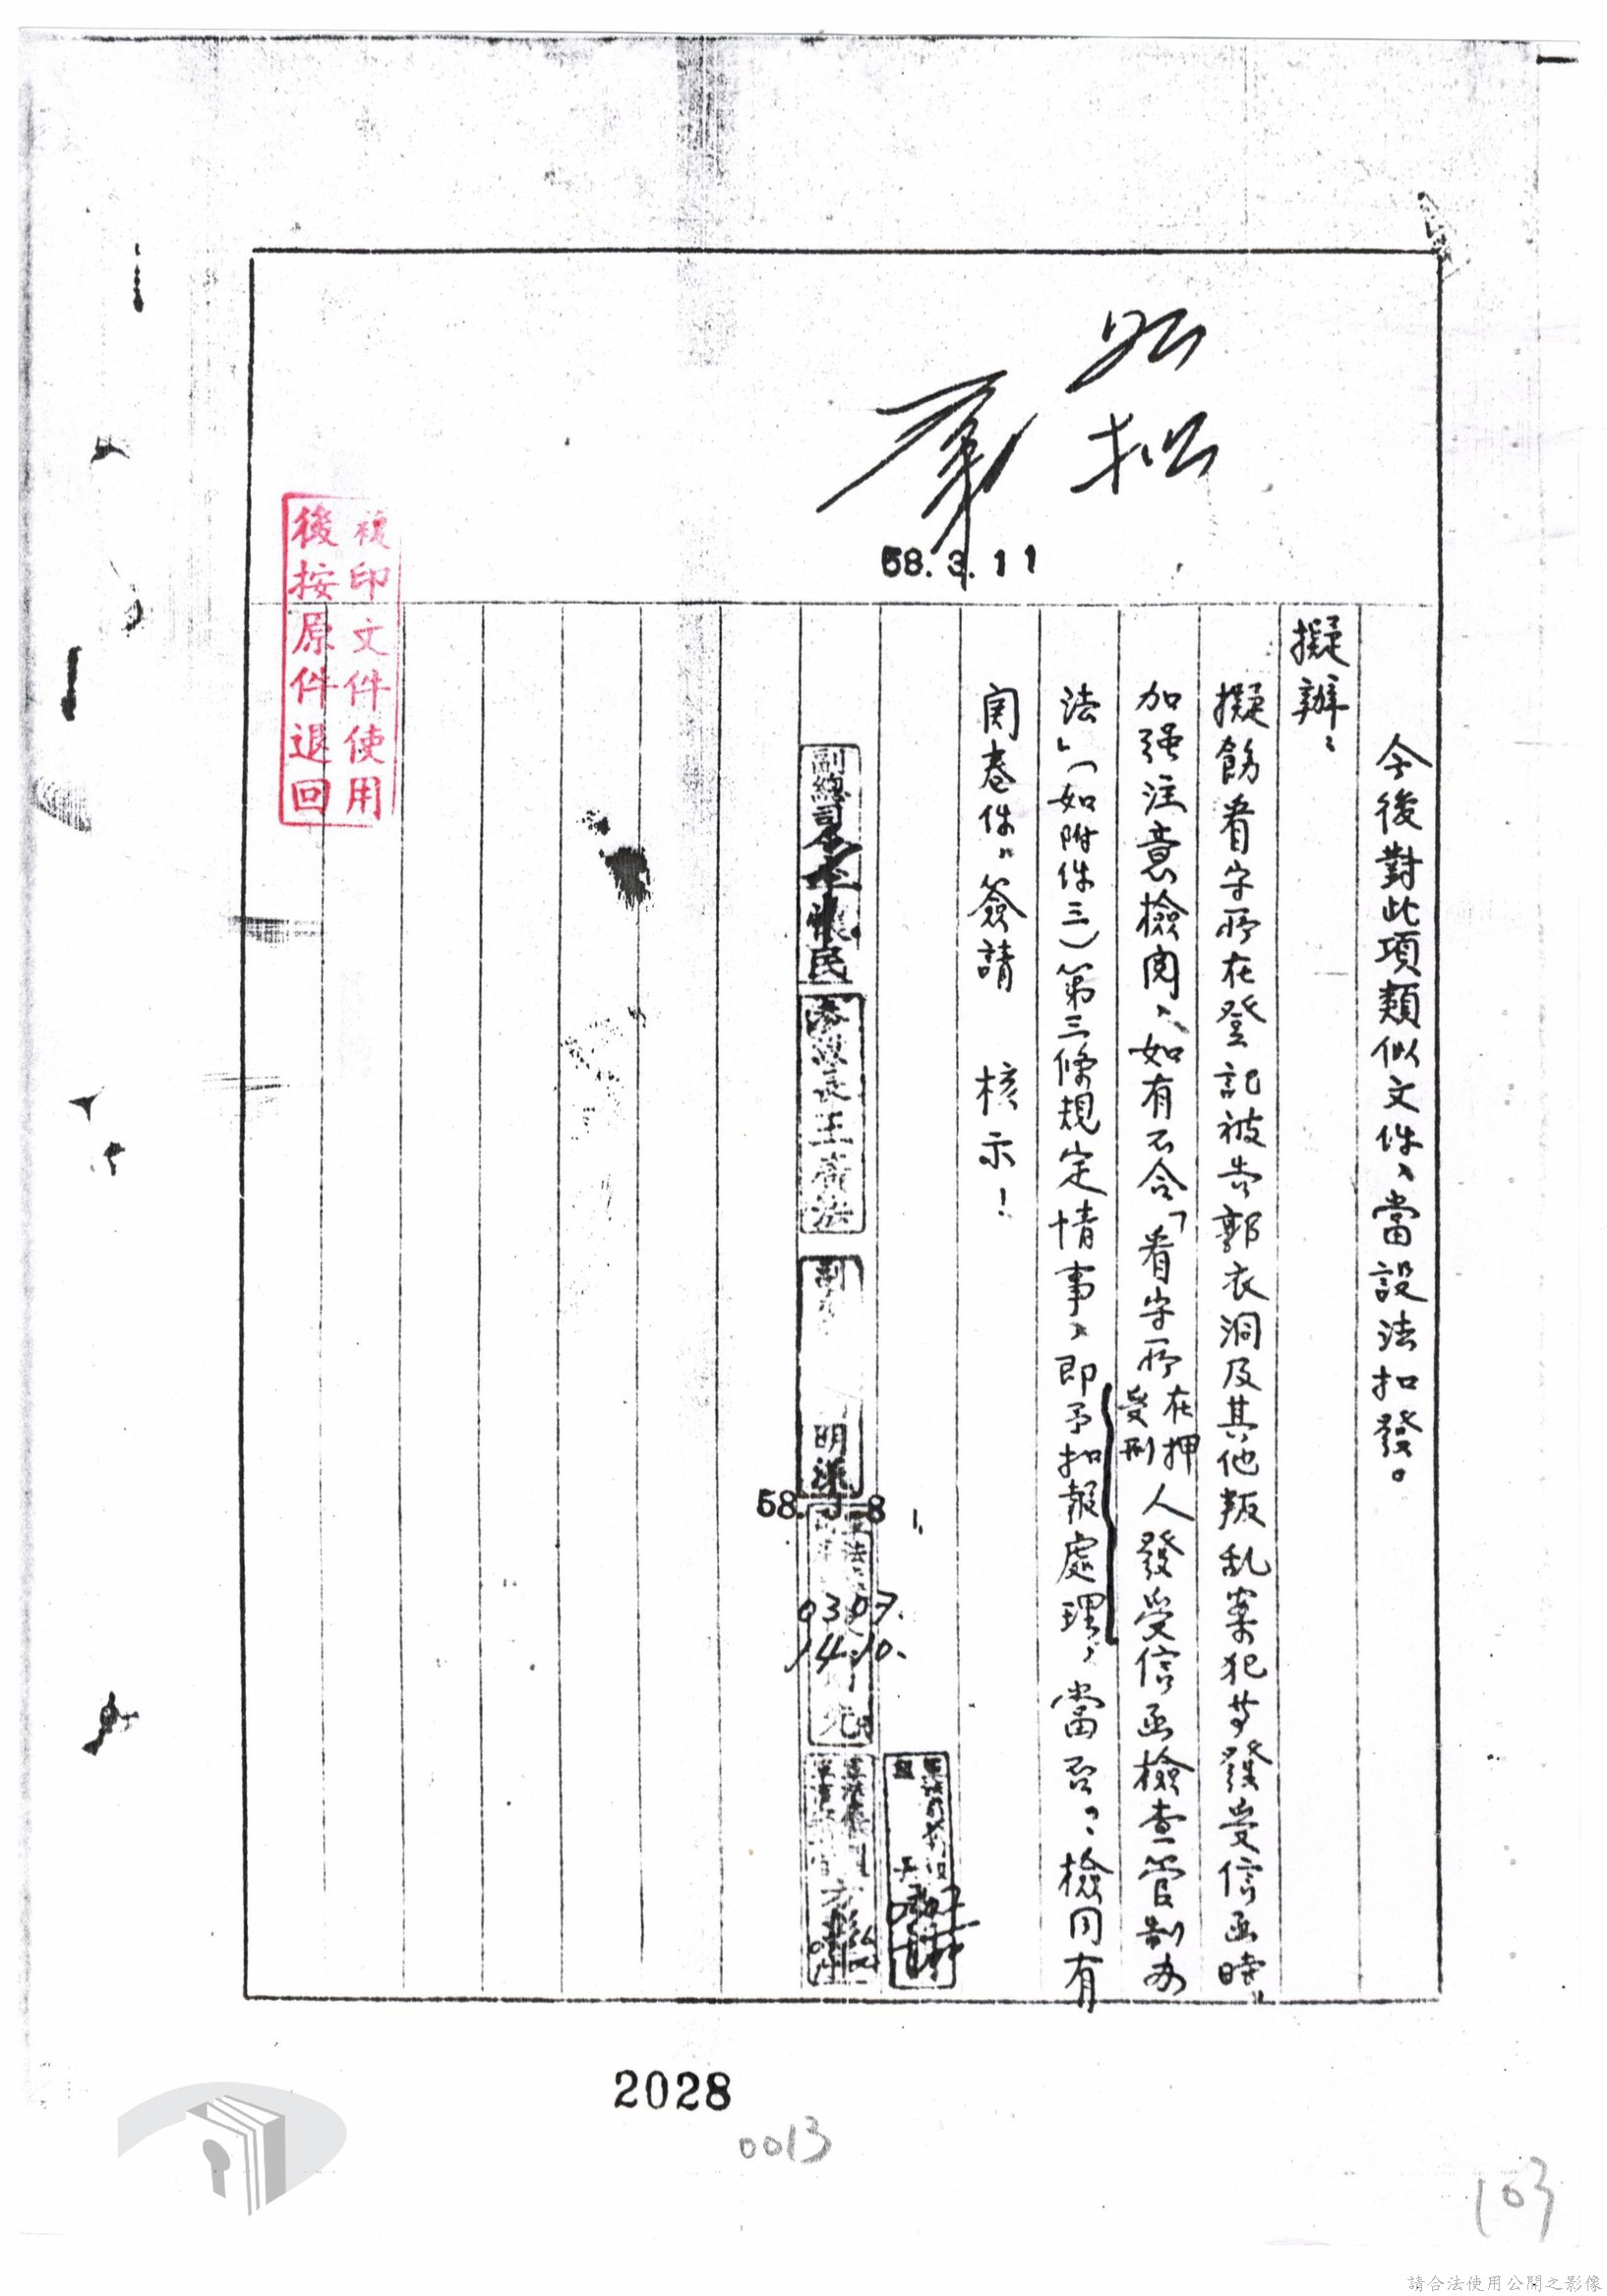 今後對此項類似文件、當設法扣發。
擬辦：
擬飭看守所在登記被告郭衣洞及其他叛乱案犯等發受信函時，
加强注意檢閱、如有不合「看守所在押受刑人發受信函檢查管制办
法」（如附件三）第三條規定情事、即予扣報處理，當否？檢同有
関卷件，簽請　核示！
如擬
58.3.11
副總司令
民
長王
法
副
明
58. 8
0307.
1410.
複印文件使用
後按原件退回
2028
0013
103
請合法使用公開之影像